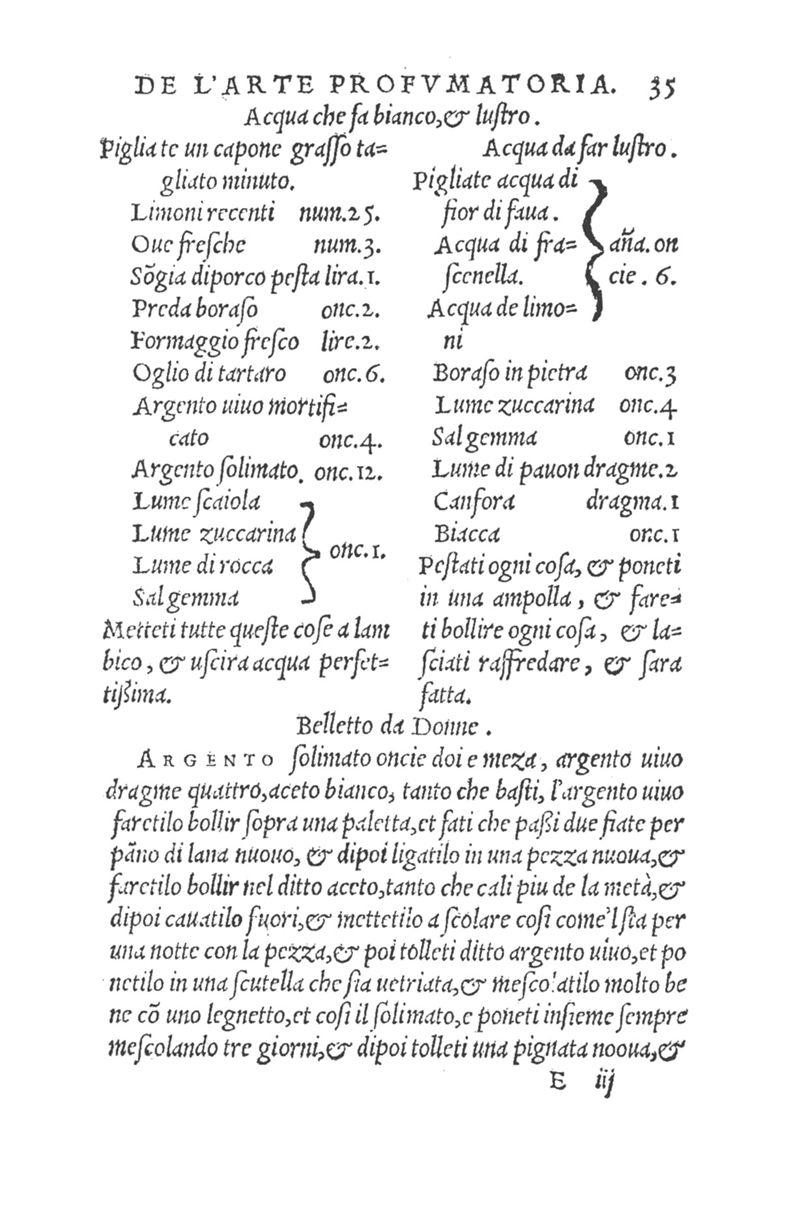 DE L'ARTE PROFVMATORIA. 35
Acqua che fa bianco,& luſtro.
Pigliate un capone graſſo ta=
gliato minuto.
Limoni recenti num.25.
Oue freſche num.3.
Sõgia di porco peſta lira.1.
Preda boraſo onc.2.
Formaggio freſco lire.2.
Oglio di tartaro onc.6.
Argento uiuo mortifi=
cato onc.4.
Argento ſolimato. onc.12.
Lume ſcaiola
Lume zuccarina
onc.1.
Lume di rocca
Sal gemma
Metteti tutte queſte coſe a lam
bico, & uſcira acqua perfet=
tißima.
Acqua da far luſtro.
Pigliate acqua di
fior di faua.
Acqua di fra= aña. on
ſcenella. cie. 6.
Acqua de limo=
ni
Boraſo in pietra onc.3
Lume zuccarina onc.4
Sal gemma onc.1
Lume di pauon dragme.2
Canfora dragma.1
Biacca onc.1
Peſtati ogni coſa, & poneti
in una ampolla, & fare=
ti bollire ogni coſa, & la=
ſciati raffredare, & ſara
fatta.
Belletto da Donne.
ARGENTO ſolimato oncie doi e meza, argento uiuo
dragme quattro,aceto bianco, tanto che baſti, l'argento uiuo
faretilo bollir ſopra una paletta,et fati che paßi due fiate per
pãno di lana nuouo, & dipoi ligatilo in una pezza nuoua,&
faretilo bollir nel ditto aceto,tanto che cali piu de la metà,&
dipoi cauatilo fuori,& mettetilo a ſcolare coſi come'l ſta per
una notte con la pezza,& poi tolleti ditto argento uiuo,et po
netilo in una ſcutella che ſia uetriata,& meſcolatilo molto be
ne cõ uno legnetto,et coſi il ſolimato,e poneti inſieme ſempre
meſcolando tre giorni,& dipoi tolleti una pignata nooua,&
E iij